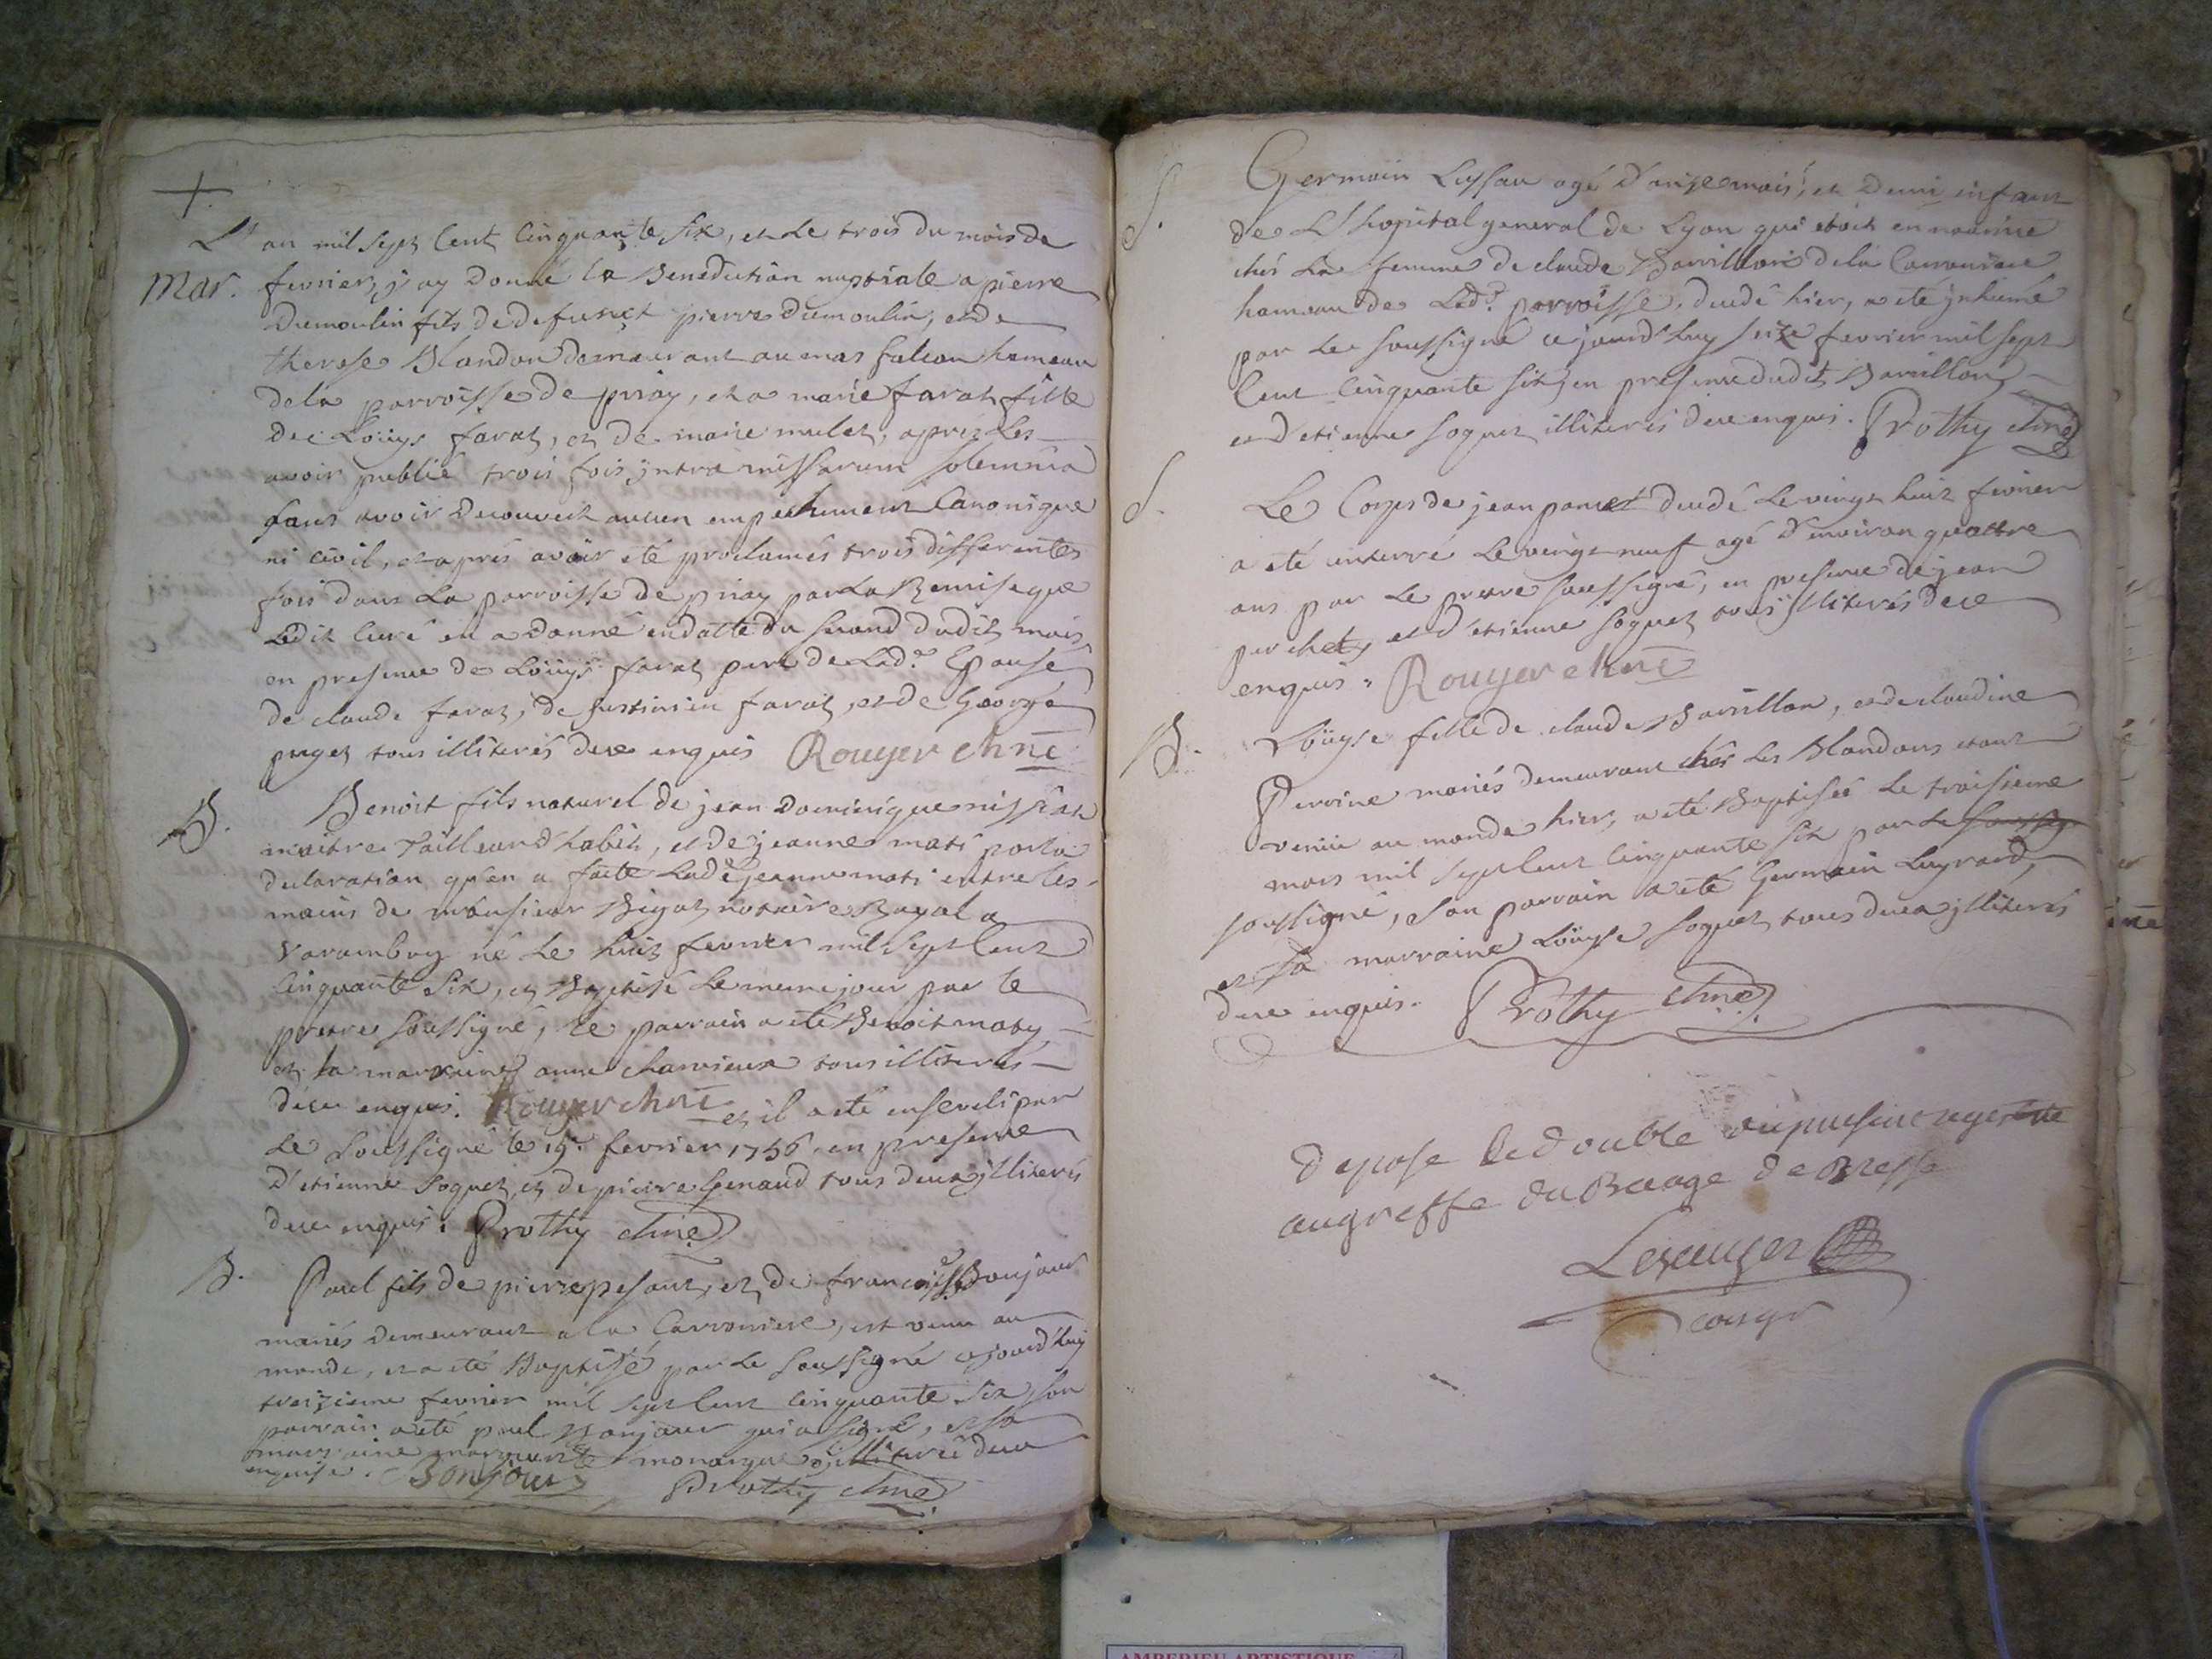 +
L'an mil sept cent cinquante six, et le trois du mois de
Mar. fevrier, j'ay donné la Benediction nuptiale a pierre
Dumoulin fils de defunct pierre Dumoulin, et de
therese Blandon demeurant au mas falcon hameau
de la parroisse de priay, et a marie farat fille
de Loüys farat, et de marie mulet, apres les
avoir publié trois fois jntra missarum solemnia
sans avoir decouvert aucun empechement Canonique
ni civil, et après avoir eté proclamés trois differentes
fois dans la parroisse de priay par la Remise que
Ledit curé en a donné en datte du second dudit mois,
en presence de Loüys farat pere de Lad.e Epouse,
de claude farat, de justinien farat, et de George
puget tous illiterés de ce enquis Rouyer chne
B. Benoit fils naturel de jean Dominique
maitre Tailleur d'habits, et de jeanne mati par la
declaration qu'en a faite Lad.e jeanne mati entre les
mains de monsieur Bigot notaire Royal a
Varambon né le huit fevrier mil sept cent
cinquante six, et Baptisé le meme jour par le
pretre soussigné, le parrain a eté Benoit maty,
et la marraine anne charvieux tous illiterés
de ce enquis. Rouyer chne et il a eté enseveli par
Le soussigné le 19.e fevrier 1756. en presence
d'etienne soquet, et de pierre Genaud tous deux jlliterés
de ce enquis. Prothy chne
B. Paul fils de pierre pesant, et de françoise Bonjour
mariés demeurant a la Carroniere, est venu au
monde, et a eté Baptisé par le soussigné cejourd'huy
treizieme fevrier mil sept cent cinquante six, son
parrain a eté paul Bonjour qui a signé, et sa
marraine marguerite jlliterée de ce
enquise. Bonjour Prothy chne
S. Germain Lussau agé d'onze mois, et demi enfant
de L'hopital general de Lyon qui etoit en nourrice
chés La femme de claude Barrillon de la Carroniere
hameau de Lad.e parroisse, decedé hier, a eté jnhumé
par Le soussigné cejourd'huy seize fevrier mil sept
cent cinquante six, en presence dudit Barrillon,
et d'etienne soquet illiterés de ce enquis. Prothy chne
S. Le Corps de jean decedé Le vingt huit fevrier
a eté enterré Le vingt neuf agé d'environ quattre
ans par Le pretre soussigné, en presence de jean
perchet, et d'etienne soquet tous jlliterés de ce
enquis. Rouyer chne
B. Loüyse fille de claude Barrillon, et de claudine
Perrine mariés demeurant chés les Blandons etant
venüe au monde hier, a eté Baptisée le troisieme
mars mil sept cent cinquante six par Le soussig
soussigné, son parrain a eté Germain Luyraud,
et sa marraine Loüyse soquet tous deux jlliterés
de ce enquis. Prothy chne
Depose le double du present registre
au greffe du Baliage de Bresse